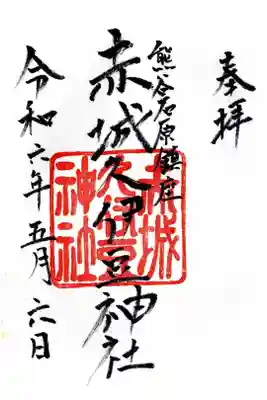 奉拝
熊谷石原鎮座
赤城久伊豆神社
令和六年五月六日
赤城
久伊豆
神社